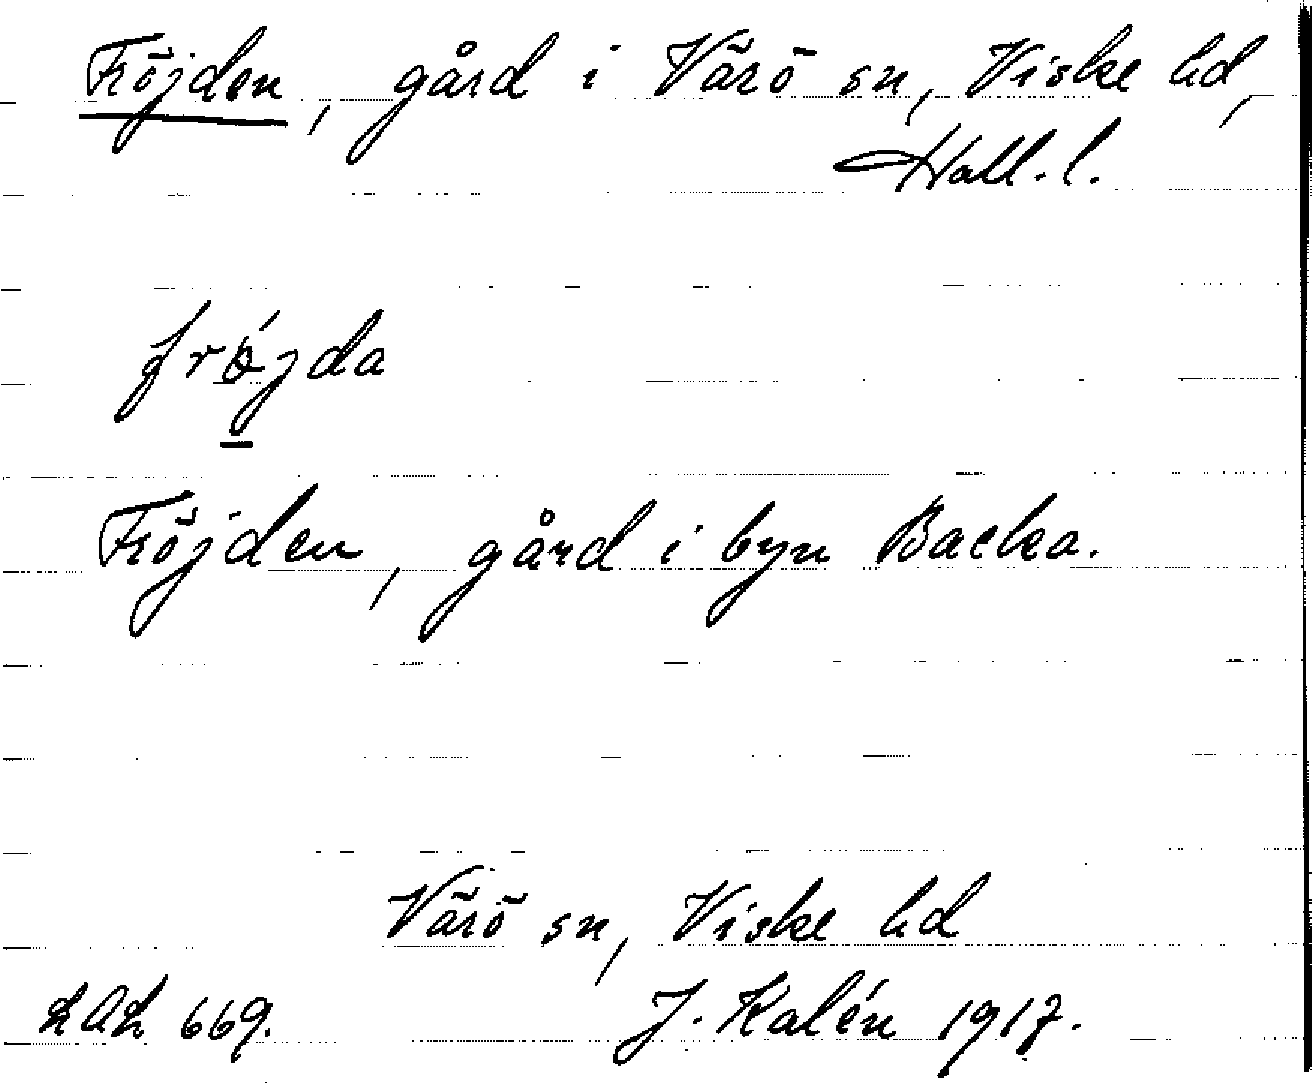 Fröjden, gård i Värö sn, Viske hd,
Hall. l.
frǿjda
Fröjden, gård i byn Backa.
Värö sn, Viske hd
LAL 669. J. Kalén 1917.